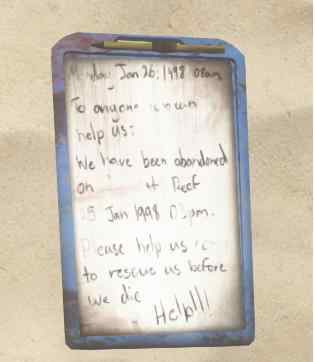 Monday Jan 26; 1998 08am
To anyone
help us:
We have been abandoned
on Reef
25 Jan 1998 03pm.
Please help us
to rescue us before
we die
Help!!!